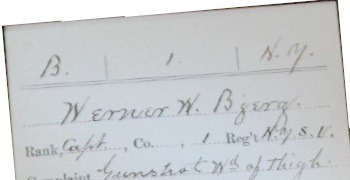 B. 1. N.Y.
Werner W. Bjerg.
Rank, Capt., Co. , 1 Reg't N.Y.S.V.
Complaint, Gunshot Wd of thigh.